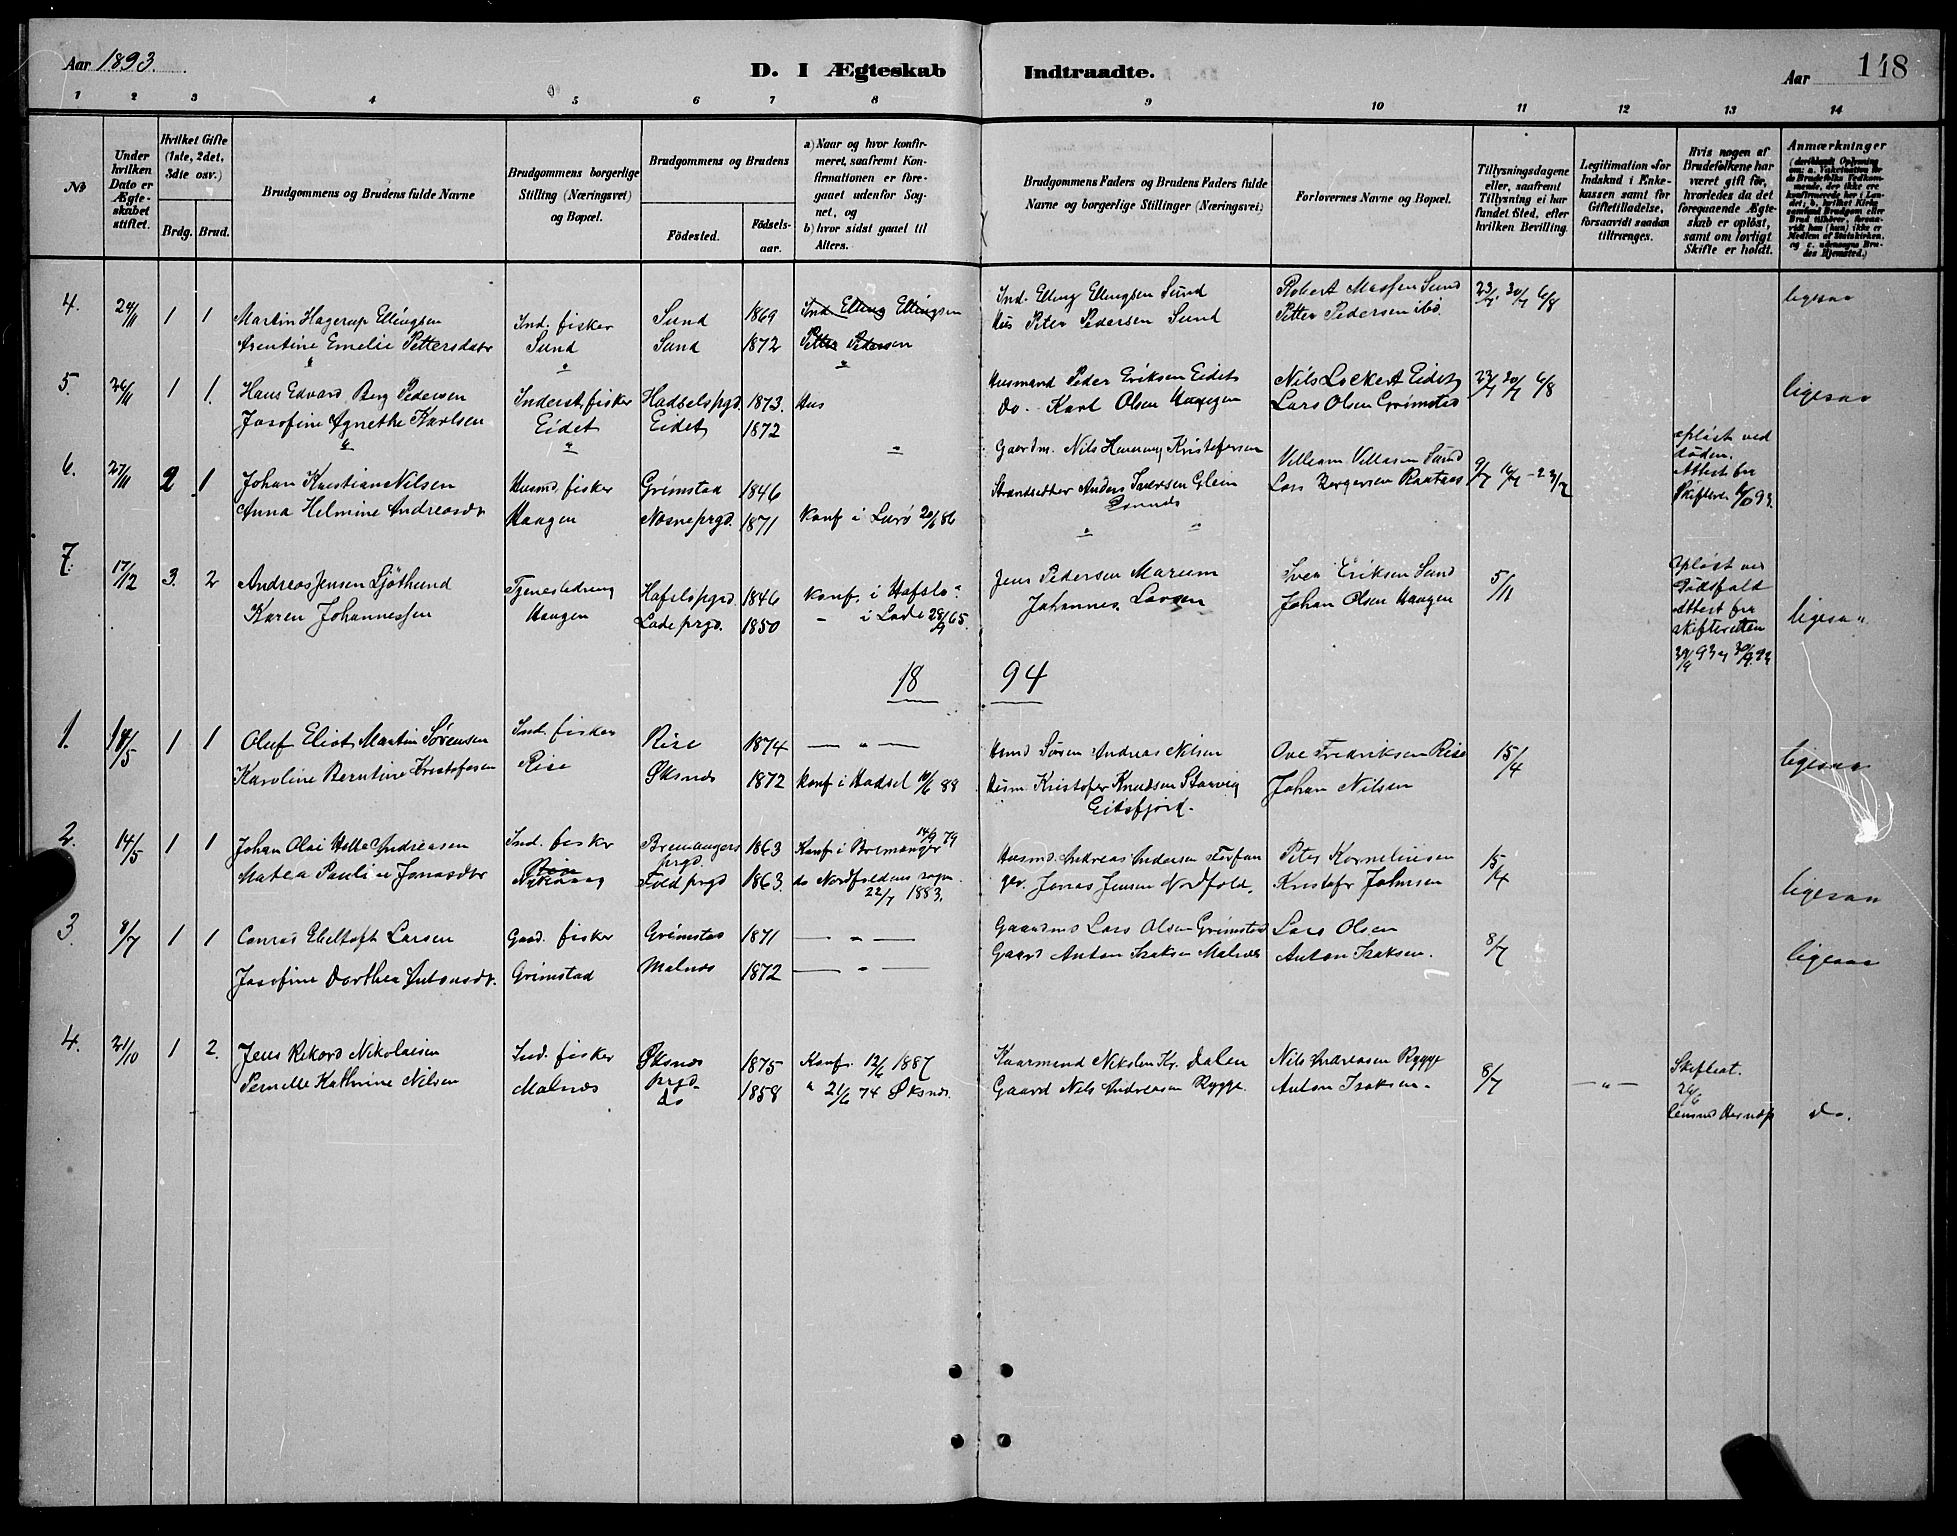 Aar 1893.
D. I Ægteskab Indtraadte.
Aar 118
1 2 3 4 5 6 7 8 9 10 11 12 13 14
No
Under hvilken Dato er Ægteskabet stiftet.
Hvilket Gifte (1ste, 2det, 3die osv.)
Brdg. Brud.
Brudgommens og Brudens fulde Navne
Brudgommens borgerlige Stilling (Næringsvei) og Bopæl.
Brudgommens og Brudens
Födested. Födselsaar.
a) Naar og hvor konfirmeret, saafremt Konfirmationen er foregaaet udenfor Sognet, og
b) hvor sidst gaaet til Alters.
Brudgommens Faders og Brudens Faders fulde Navne og borgerlige Stillinger (Næringsvei)
Forlovernes Navne og Bopæl.
Tillysningsdagene eller, saafremt Tillysning ei har fundet Sted, efter hvilken Bevilling.
Legitimation for Indskud i Enkekassen samt for Giftetilladelse, forsaavidt saadan tiltrænges.
Hvis nogen af Brudefolkene har været gift før, hvorledes da det foregaaende Ægteskab er oplöst, samt om lovligt Skifte er holdt.
Anmærkninger
4. 24/11 1 1 Martin Hagerup Ellingsen Ind. fisker Sund 1869 Ind Elling Ellingsen Ind. Elling Ellingsen Sund Robert Sund 23/7 30/7 6/8 ligesaa
Arentine Emelie Pettersdatr Sund Sund 1872 Petter Pedersen Hus Peter Pedersen Sund Petter Pedersen ibd.
5. 26/11 1 1. Hans Edvard Berg Pedersen Inderst. fisker Hadselspgd. 1873. Hus Husmand Peder Eriksen Eidet Nils Lockert Eidet 23/7 30/7 6/8 ligesaa
Josefine Agnethe Karlsen Eidet Eidet 1872 do. Karl Olsen Haugen Lars Olsen Grimstad
6. 27/11 2 1 Johan Kristian Nilsen Husmd. fisker Grimstad 1846 " Gaardm. Nils Henning Kristofersen Villiam Sund 9/7 16/7 - 23/7 opløst ved døden. Attest fra Skifteret 93.
Anna Helmine Andreasdr Haugen Nesneprgd. 1871 Konf i Lurø 20/6 86 Strandsidder Anders Iversen Glein Lars Borgersen
7. 17/12 3. 2 Andreas Jensen Ljøthund Tjenestedreng Hafslspgd. 1846 Konf. i Hafslo - Jens Pedersen Marum Iver Eriksen Sund 5/11 opløst ved Dødsfald Attest fra skifteretten ligesaa
Karen Johannessen Haugen Lade prgd. 1850 - i Lade 28/9 65. Johannes Larsen Johan Olsen Haugen
18 94
1. 14/5 1 1 Oluf Eliot Martin Sørensen Ind. fisker Rise 1874 — " — Husmd Søren Andreas Nilsen Ove Fredriksen Rise 15/4 ligesaa
Karoline Berntine Kristofersen Rise Øksnes 1872 Konf i Hadsel 10/6 88 Husm. Kristofer Knudsen Eidsfjord. Johan Nilsen
2. 14/5 1 1 Johan Olai Andreasen Ind. fisker Bremangers prgd. 1863 Konf i Bremanger 14/9 79 Husmd. Andreas Andersen Peter Kornelius en 15/4
Matea Pauline Jonasdtr Foldprgd 1863. do Nordfoldens sogn 22/7 1883. Jonas Jensen Nordfold. Kristofr Johnsen ligesaa
3. 8/7 1 1 Conrad Ebeltoft Larsen Gaad. fisker Grimstad 1871 — " — Gaardmd Lars Olsen Grimstad Lars Olsen 8/7 ligesaa
Josefine Dorthea Antonsdr. Grimstad Malnes 1872 — " — Gaard Anton Isaksen Malnes Anton Isaksen.
4. 21/10 1 2. Jens Rikard Nikolaisen Ind. fisker Øksnes prgd. 1875 Konf. 12/6 1887 Gaarmand Nikolai Kr. Dalen Nils Andreasen Rygge 8/7 — " — Skifteat. 26/6 do.
Pernelle Kathrine Nilsen Malnes do 1858 " 21/6 74 Øksnes. Gaard Nils Andreasen Rygge. Anton Isaksen -